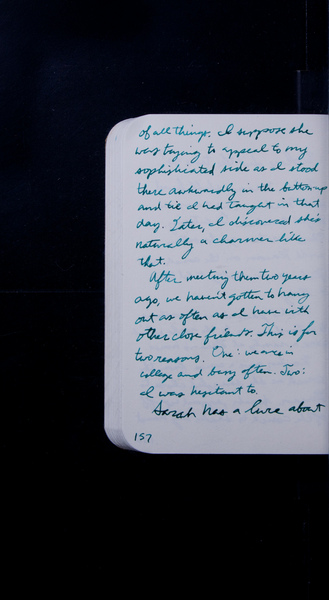 of all things. I suppose she
was trying to appeal to my
sophisticated side as I stood
there awkwardly in the button-up
and tie I had taught in that
day. Later, I discovered she's
naturally a charmer like
that.
After meeting them two years
ago, we haven't gotten to hang
out as often as I have with
other close friends. This is for
two reasons. One: we are in
college and busy often. Two:
I was hesitant to.
Sarah has a lure about
157